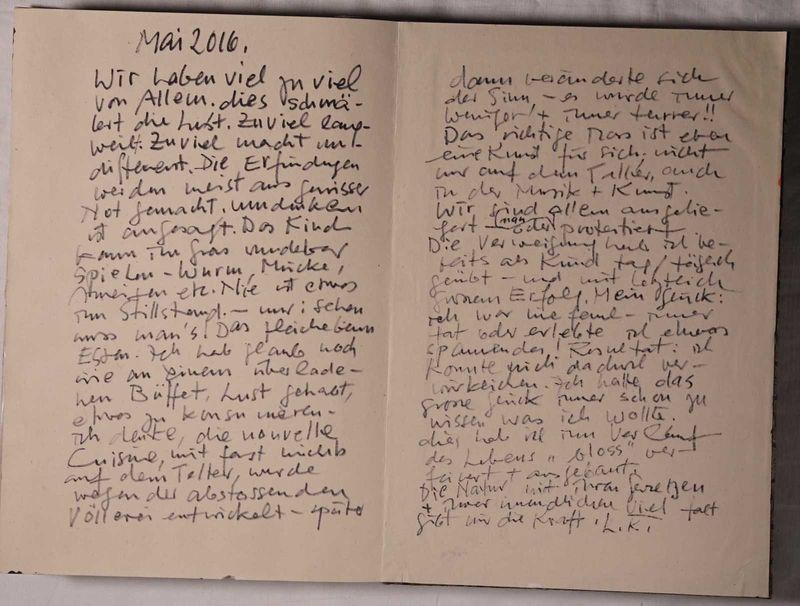 Mai 2016.
Wir haben viel zu viel
von Allem. dies schmä-
lert die Lust. Zuviel lang-
weilt. Zuviel macht in-
different. Die Erfindungen
werden meist aus gewisser
Not gemacht. umdenken
ist angesagt. Das Kind
kann im Gras wunderbar
spielen - Wurm, Mücke,
Ameisen etc. Nie ist etwas
im Stillstand. - nur: sehen
muss man's! Das gleiche beim
Essen. Ich hab glaub noch
nie an einem überlade-
nen Büffet, Lust gehabt,
etwas zu konsumieren -
ich denke, die nouvelle
Cuisine, mit fast nichts
auf dem Teller, wurde
wegen der abstossenden
Völlerei entwickelt - später
dann veränderte sich
der Sinn - es wurde immer
weniger + immer teurer!!
Das richtige Mass ist eben
eine Kunst für sich. nicht
nur auf dem Teller, auch
in der Musik + Kunst.
Wir sind allem ausgelie-
fert - oder man protestiert
Die Verweigerung hab ich be-
reits als Kind tag/täglich
geübt - und mit letztlich
grossem Erfolg. Mein Glück:
ich war nie - immer
tat oder erlebte ich etwas
spannendes! Resultat: ich
konnte mich dadurch ver-
wirklichen. Ich hatte das
grosse Glück immer schon zu
wissen was ich wollte.
dies hab ich im Verlauf
des Lebens "bloss" ver-
feinert + ausgebaut.
Die Natur mit ihren Gesetzen
+ ihrer unendlichen Vielfalt
gibt mir die Kraft. L.K.